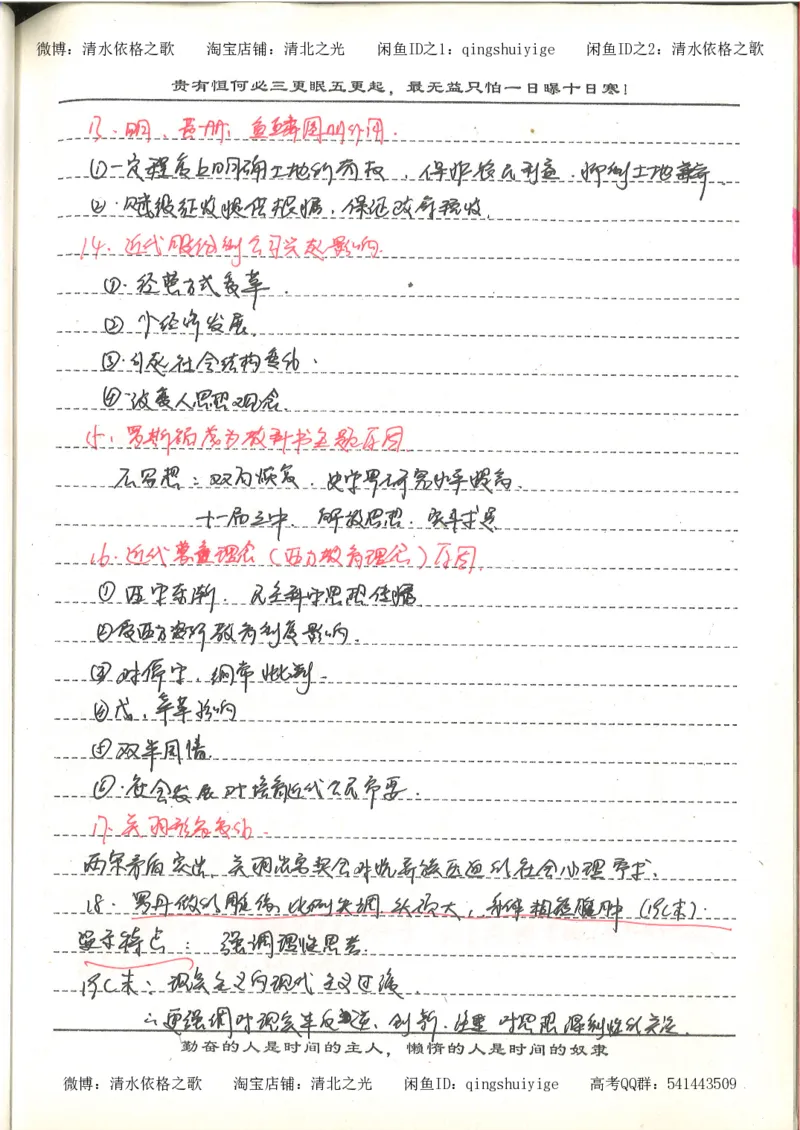 微博：清水依格之歌 淘宝店铺：清北之光 闲鱼ID之1：qingshuiyige 闲鱼ID之2：清水依格之歌
贵有恒何必三更眠五更起，最无益只怕一日曝十日寒！
13.明、黄册、鱼鳞图册作用.
①一定程度上明确土地所有权，保护农民利益.抑制土地兼并.
②.赋税征收提供根据，保证政府税收.
14.近代股份制公司兴起影响.
①.经营方式变革.
② 个经济发展.
③.引起社会结构变动.
④.改变人思想观念.
15.罗斯福成为教科书主题原因.
不写想：双百恢复.史学界研究水平提高.
十一届三中.解放思想.实事求是
16.近代教育理念（西方教育理念）原因.
①西学东渐.民主科学思想传播
②受西方资阶教育制度影响.
③对儒学、纲常批判.
④戊、辛革影响
⑤双半国情.
⑥.社会发展对培育近代公民需要.
17.关羽形象变化.
两宋矛盾突出，关羽忠勇契合对抗异族压迫的社会心理需求.
18.罗丹做的雕像，比例失调.头颅大，身体粗壮臃肿（19C末）.
显示特点：强调理性思考.
19C末：现实主义向现代主义过渡.
∴更强调对现实半反叛、创新.注重对思想深刻性的关注.
勤奋的人是时间的主人，懒惰的人是时间的奴隶
微博：清水依格之歌 淘宝店铺：清北之光 闲鱼ID：qingshuiyige 高考QQ群：541443509